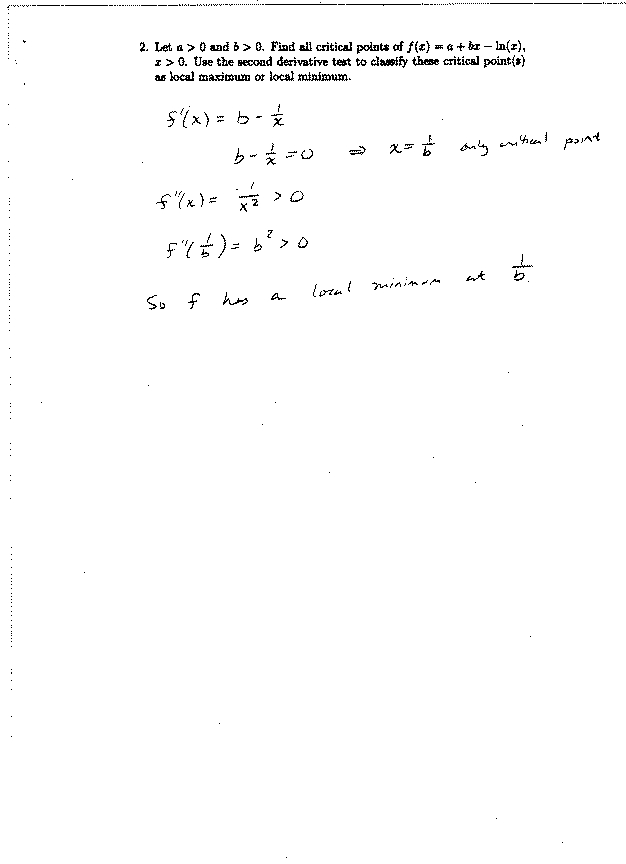 2. Let a > 0 and b > 0. Find all critical points of f(x) = a + bx − ln(x),
x > 0. Use the second derivative test to classify these critical point(s)
as local maximum or local minimum.
f'(x) = b - 1/x
b - 1/x = 0 ⇒ x = 1/b only critical point
f''(x) = 1/x² > 0
f''(1/b) = b² > 0
So f has a local minimum at 1/b.